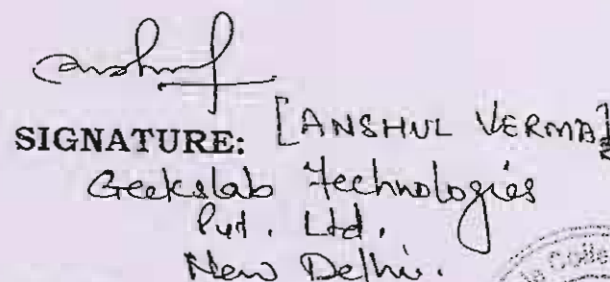 Anshul
SIGNATURE: [ANSHUL VERMA]
Geekslab Technologies
Pvt. Ltd.
New Delhi.
Colle